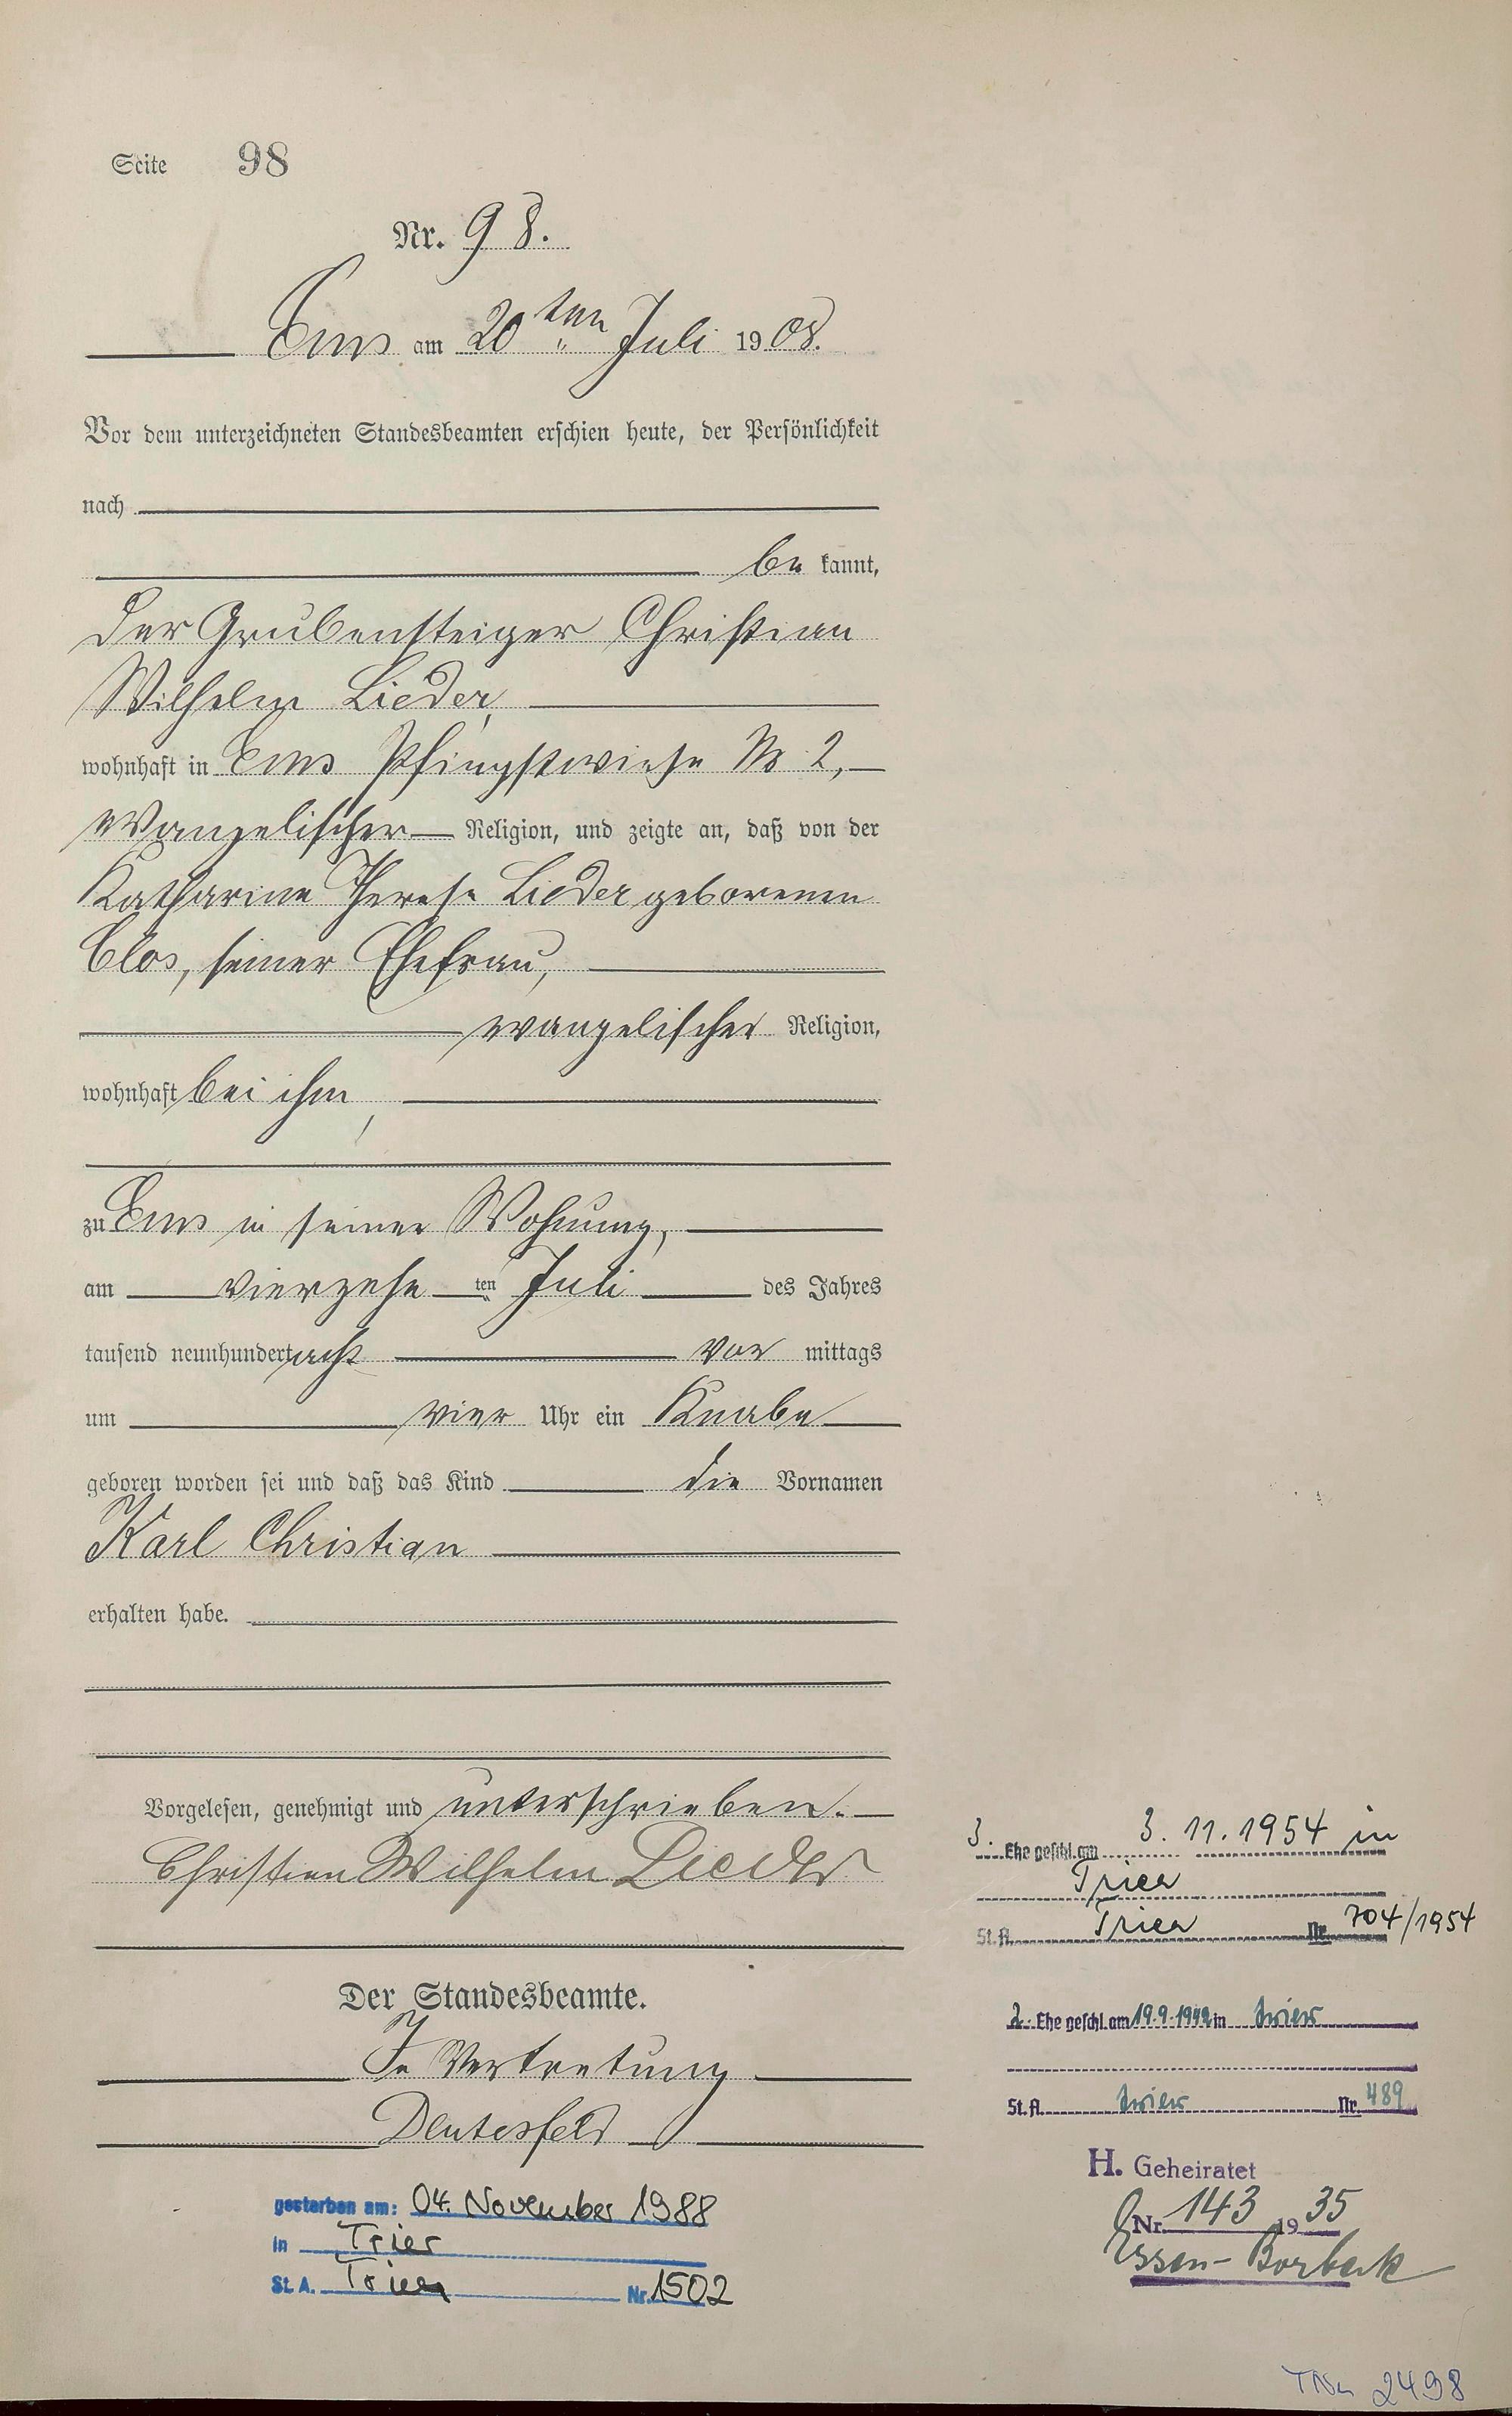 Seite 98
Nr. 98.
Ems am 20ten Juli 1908.
Vor dem unterzeichneten Standesbeamten erschien heute, der Persönlichkeit
nach
be kannt,
der Grubensteiger Christian
Wilhelm Lieder,
wohnhaft in Ems Pfingstwiese № 2,
evangelischer Religion, und zeigte an, daß von der
Katharine Therese Lieder geborenen
Clos, seiner Ehefrau,
evangelischer Religion,
wohnhaft bei ihm,
zu Ems in seiner Wohnung,
am vierzehn ten Juli des Jahres
tausend neunhundert acht vor mittags
um vier Uhr ein Knabe
geboren worden sei und daß das Kind die Vornamen
Karl Christian
erhalten habe.
Vorgelesen, genehmigt und unterschrieben.
Christian Wilhelm Lieder
Der Standesbeamte.
In Vertretung
gestorben am: 04. November 1988
in Trier
St. A. Trier Nr. 1502
3. Ehe geschl. am 3. 11. 1954 in
Trier
St. A. Trier Nr. 704/1954
2. Ehe geschl. am 19.9.1942 in Trier
St. A. Trier Nr. 489
H. Geheiratet
Nr. 143 1935
Essen-Borbeck
2498